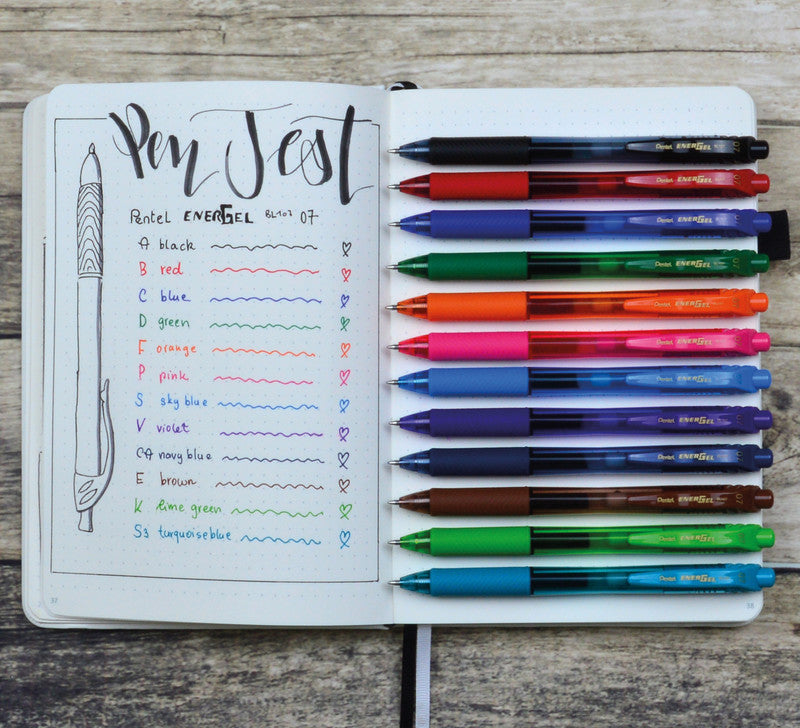 Pen Test
Pentel ENERGEL BL107 07
A black
B red
C blue
D green
F orange
P pink
S sky blue
V violet
CA navy blue
E brown
K lime green
S3 turquoise blue
37
Pentel ENERGEL 07
Pentel ENERGEL 07
Pentel ENERGEL 07
Pentel ENERGEL 07
Pentel ENERGEL 07
Pentel ENERGEL 07
Pentel ENERGEL 07
Pentel ENERGEL 07
Pentel ENERGEL 07
Pentel ENERGEL 07
Pentel ENERGEL
Pentel ENERGEL
38